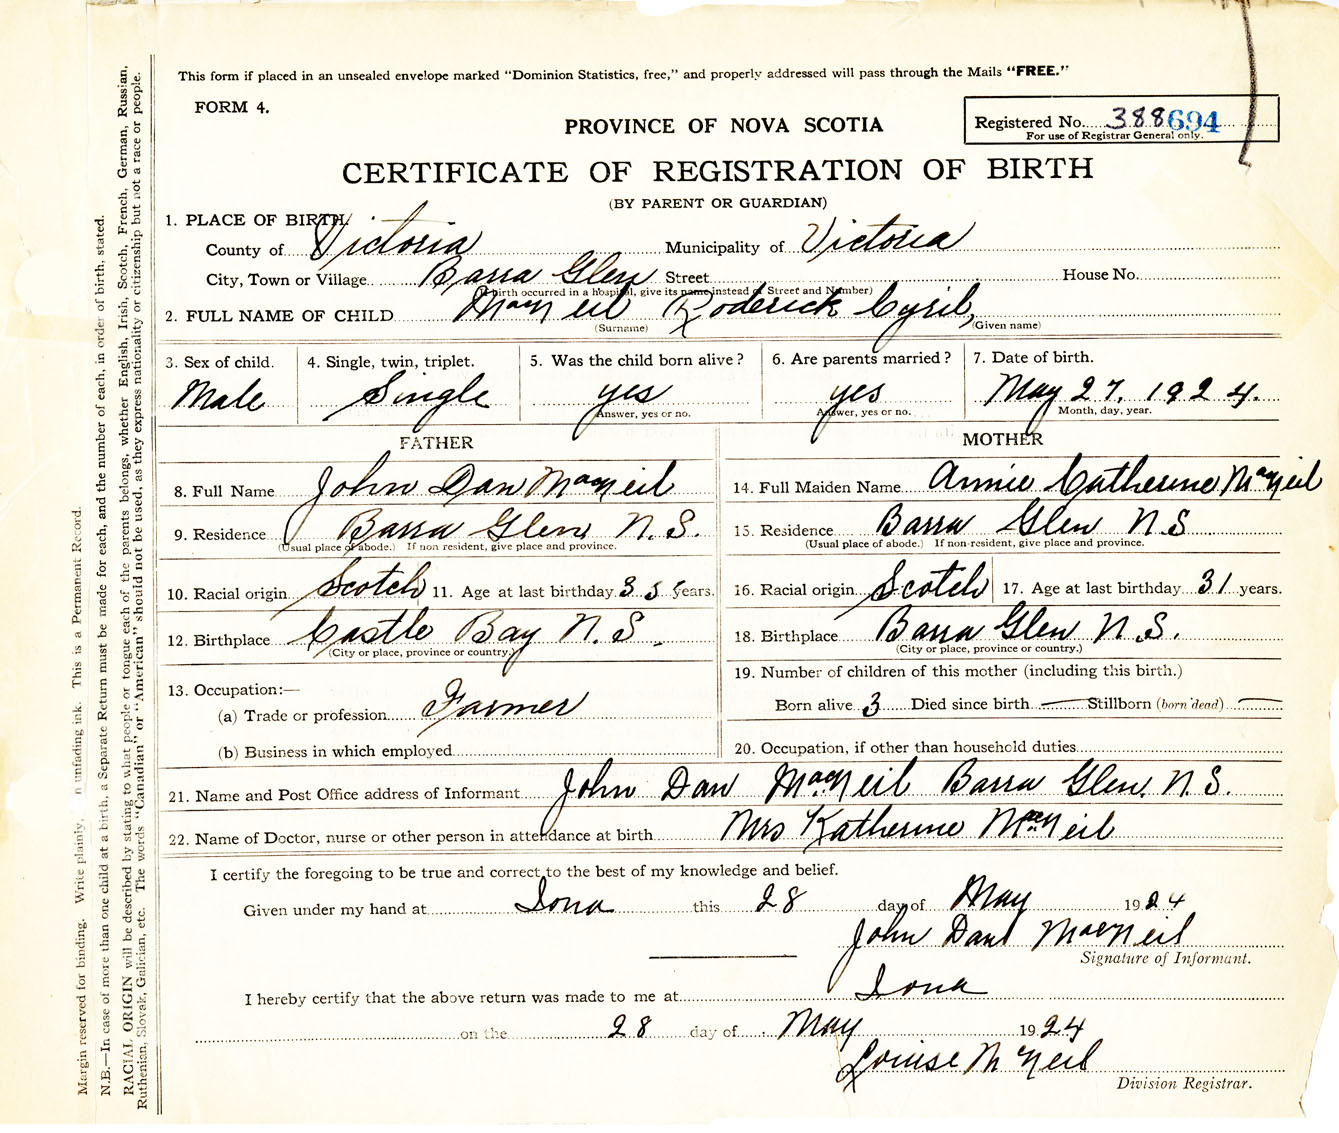 This form if placed in an unsealed envelope marked "Dominion Statistics, free," and properly addressed will pass through the Mails "FREE."
FORM 4.
PROVINCE OF NOVA SCOTIA
Registered No. 388694
For use of Registrar General only.
CERTIFICATE OF REGISTRATION OF BIRTH
(BY PARENT OR GUARDIAN)
1. PLACE OF BIRTH.
County of Victoria Municipality of Victoria
City, Town or Village Barra Glen Street House No.
(If birth occurred in a hospital, give its name instead of Street and Number)
2. FULL NAME OF CHILD MacNeil Roderick Cyril,
(Surname) (Given name)
3. Sex of child. 4. Single, twin, triplet. 5. Was the child born alive? 6. Are parents married? 7. Date of birth.
Male Single yes yes May 27, 1924.
Answer, yes or no. Answer, yes or no. Month, day, year.
FATHER MOTHER
8. Full Name John Dan MacNeil 14. Full Maiden Name Annie Catherine MacNeil
9. Residence Barra Glen N.S. 15. Residence Barra Glen N.S
(Usual place of abode.) If non resident, give place and province. (Usual place of abode.) If non-resident, give place and province.
10. Racial origin Scotch 11. Age at last birthday 35 years. 16. Racial origin Scotch 17. Age at last birthday 31 years.
12. Birthplace Castle Bay N.S. 18. Birthplace Barra Glen N.S.
(City or place, province or country.) (City or place, province or country.)
13. Occupation:— 19. Number of children of this mother (including this birth.)
(a) Trade or profession Farmer Born alive 3 Died since birth — Stillborn (born dead) —
(b) Business in which employed 20. Occupation, if other than household duties
21. Name and Post Office address of Informant John Dan MacNeil Barra Glen. N.S.
22. Name of Doctor, nurse or other person in attendance at birth Mrs Katherine MacNeil
I certify the foregoing to be true and correct to the best of my knowledge and belief.
Given under my hand at Iona this 28 day of May 1924
John Dan MacNeil
Signature of Informant.
I hereby certify that the above return was made to me at Iona
on the 28 day of May 1924
Louise McNeil
Division Registrar.
Margin reserved for binding. Write plainly, in unfading ink. This is a Permanent Record.
N.B.—In case of more than one child at a birth, a Separate Return must be made for each, and the number of each, in order of birth, stated.
RACIAL ORIGIN will be described by stating to what people or tongue each of the parents belongs, whether English, Irish, Scotch, French, German, Russian,
Ruthenian, Slovak, Galician, etc. The words "Canadian" or "American" should not be used, as they express nationality or citizenship but not a race or people.